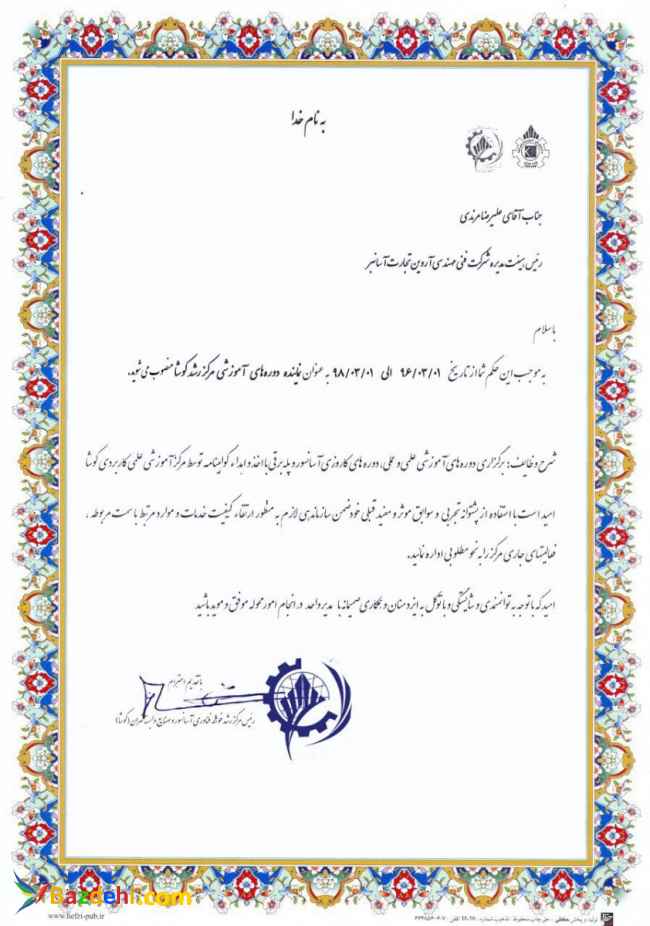 به نام خدا
جناب آقای علیرضا مرندی
رئیس هیئت مدیره شرکت فنی مهندسی آروین تجارت آسانبر
باسلام
به موجب این حکم شما از تاریخ ۹۶/۰۳/۰۱ الی ۹۸/۰۳/۰۱ به عنوان نماینده دوره های آموزشی مرکز رشد کوشا منصوب می شوید.
شرح وظایف: برگزاری دوره های آموزشی علمی و عملی، دوره های کارورزی آسانسور و پله برقی با اخذ و اهداء گواهینامه توسط مرکز آموزشی علمی کاربردی کوشا
امید است با استفاده از پشتوانه تجربی و سوابق موثر و مفید قبلی خود ضمن سازماندهی لازم به منظور ارتقاء کیفیت خدمات و موارد مرتبط با سمت مربوطه ،
فعالیتهای جاری مرکز را به نحو مطلوبی اداره نمائید.
امید که با توجه به توانمندی و شایستگی و با توکل به ایزد منان و همکاری صمیمانه با مدیر واحد در انجام امور محوله موفق و موید باشید
با تقدیم احترام
رئیس مرکز رشد خوشه فناوری آسانسور و صنایع وابسته تهران (کوشا)
Bazdehi.com
www.hefzi-pub.ir